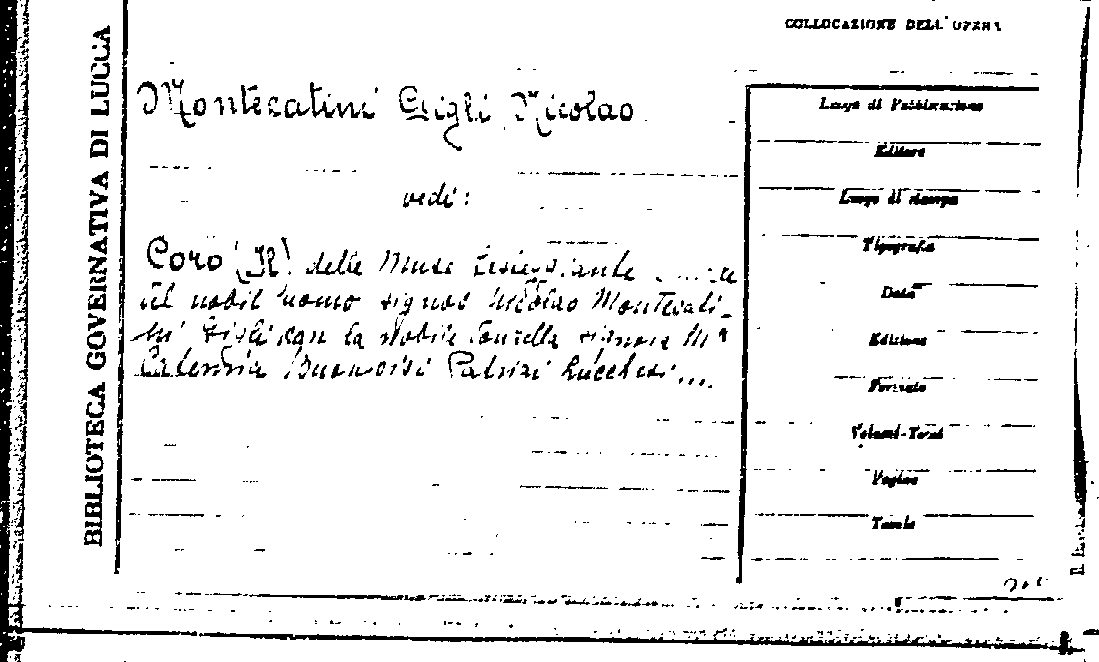 COLLOCAZIONE DELL'OPERA
BIBLIOTECA GOVERNATIVA DI LUCCA
Montecatini Gigli Nicolao
vedi:
Coro (Il) delle Muse festeggiante
del nobil uomo signor Nicolao Montecati-
ni Gigli con la nobile signora Mª
Caterina Buonvisi Patrizi Lucchesi...
Luogo di Pubblicazione
Editore
Luogo di stampa
Tipografia
Data
Edizione
Formato
Volumi-Tomi
Pagine
Tavole